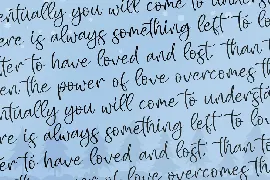 entually you will come to underst
ere is always something left to lo
tter to have loved and lost, than t
en the power of love overcomes th
entually you will come to understa
re is always something left to lov
er to have loved and lost, than to
the power of love overcomes the